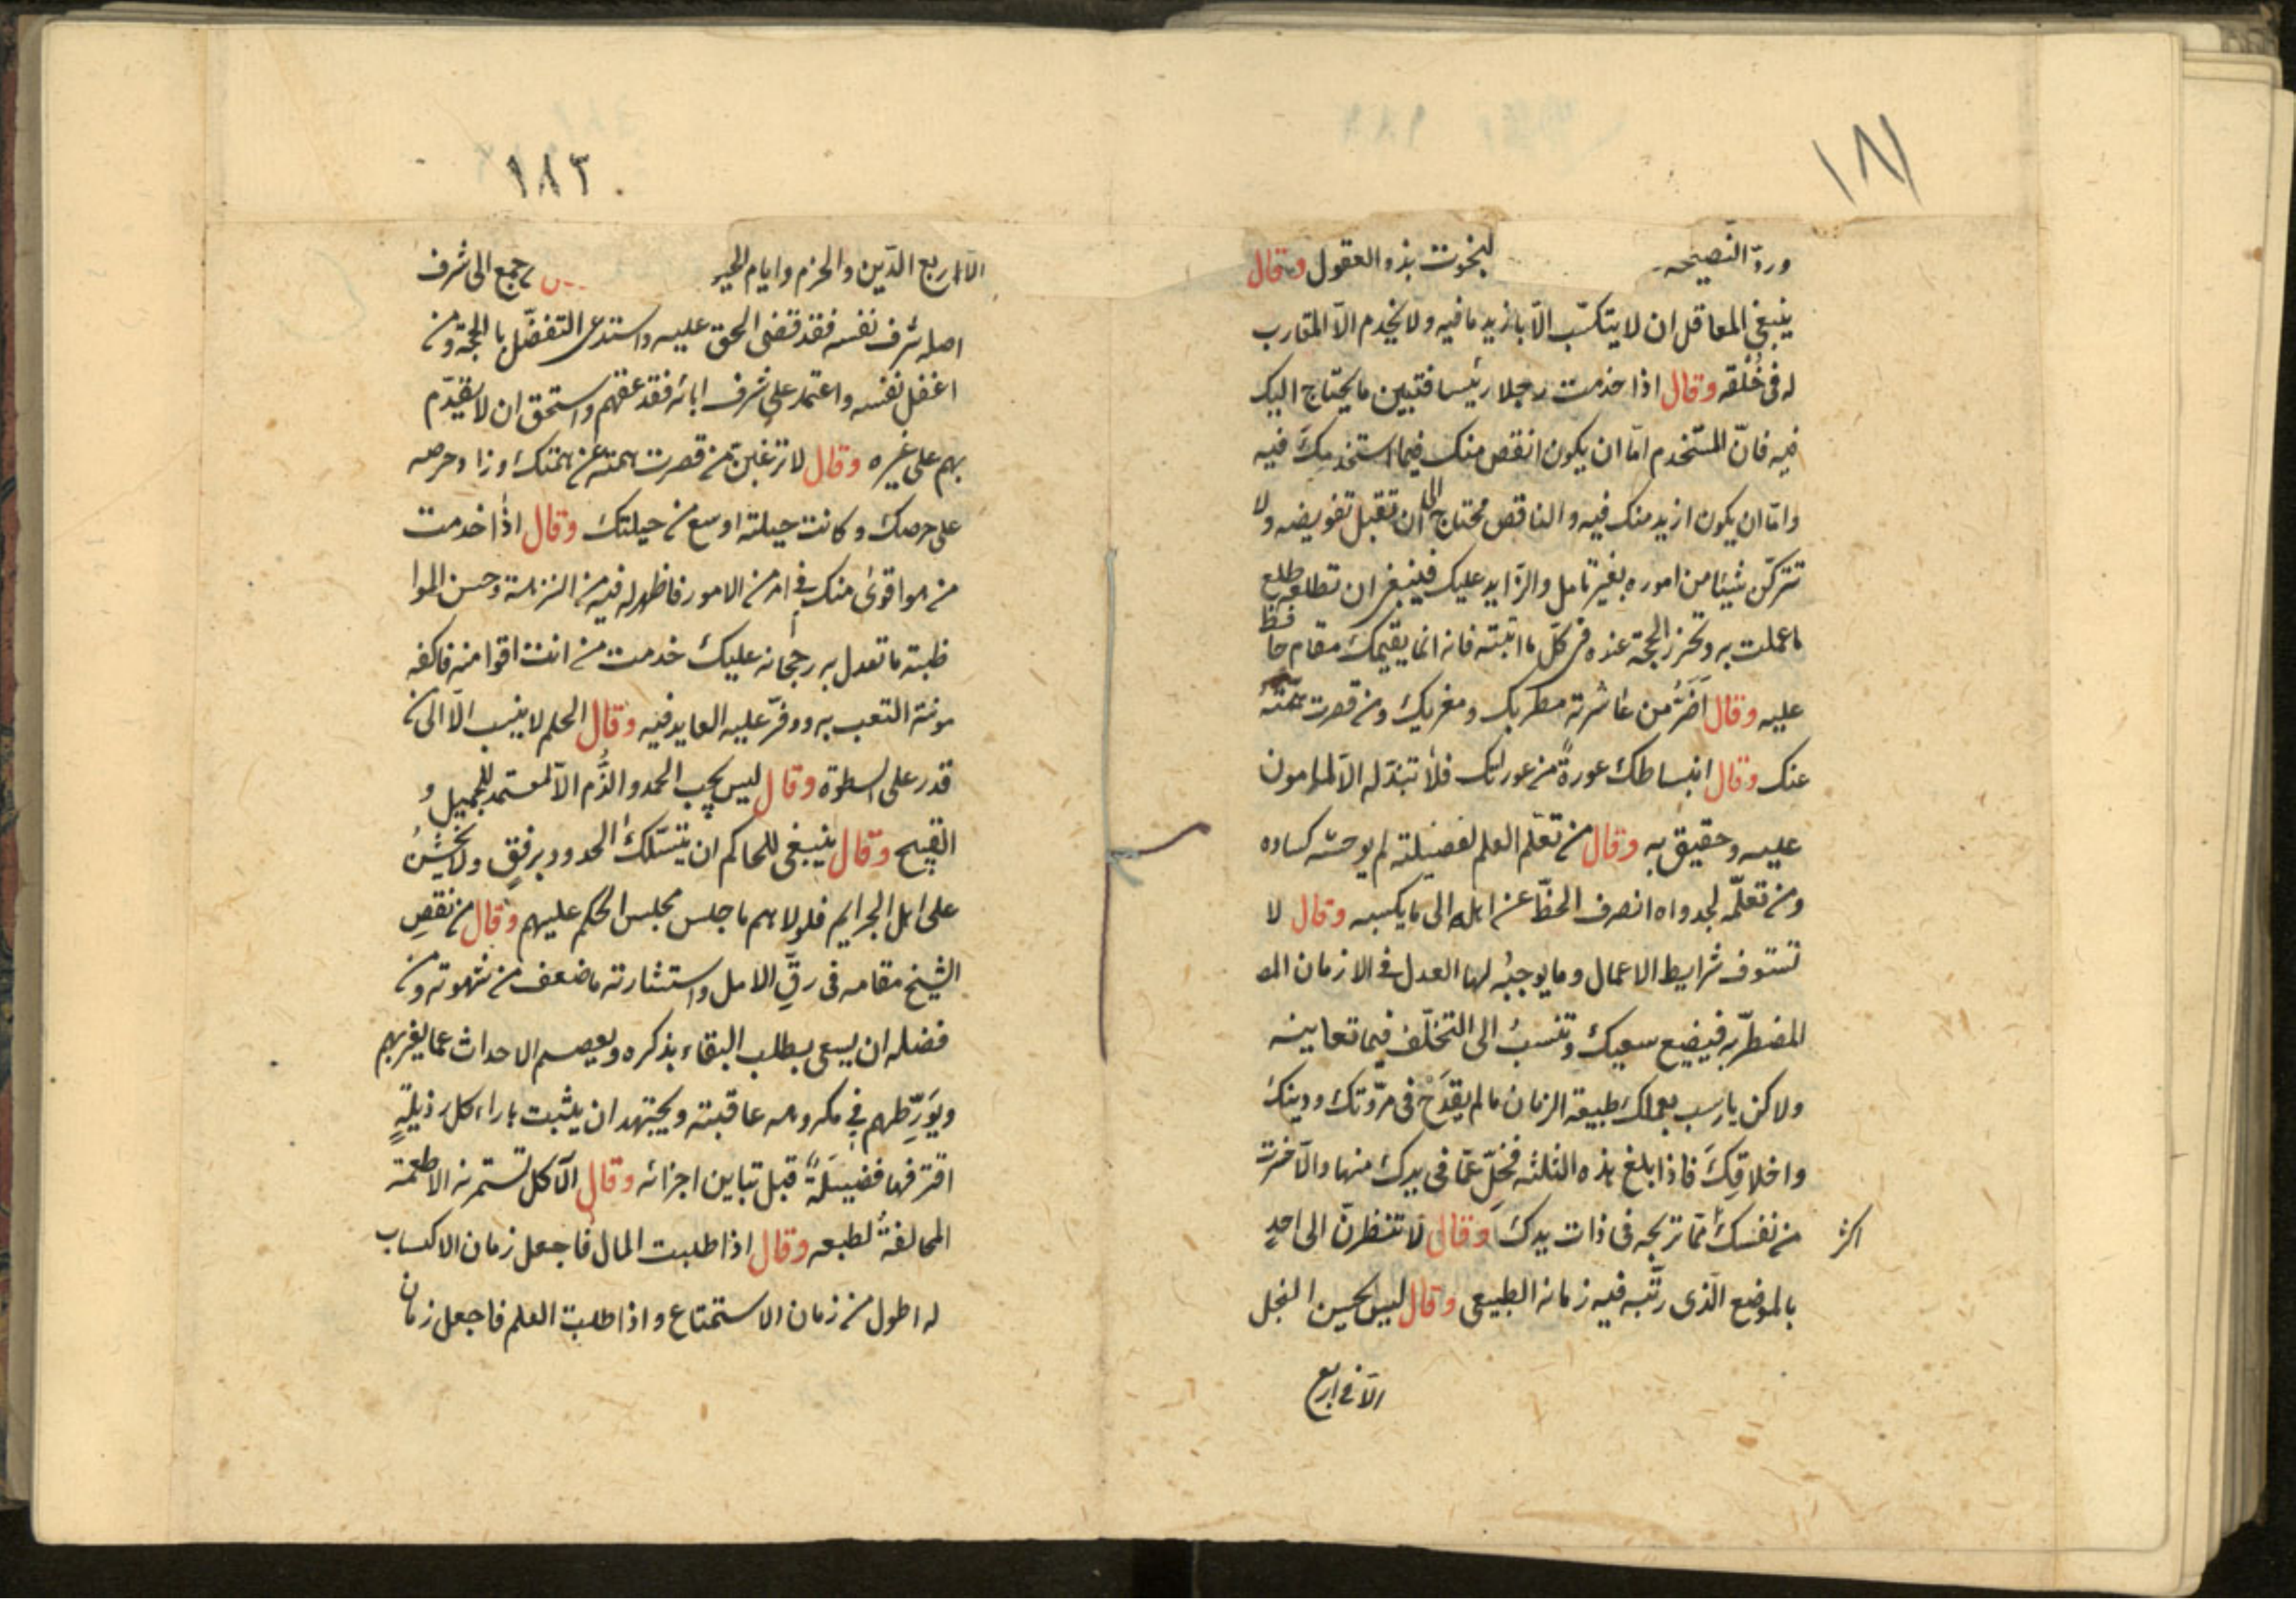 ١٨٢
وردّ النّصيحه لبخوت بذوالعقول وقال
ينبغي العاقل ان لا يتكسّب الّا بازيد ما فيه ولا يخدم الّا المقارب
له فى خُلْقه وقال اذا خدمت رجلا رئيسا فتبين ما يحتاج اليك
فيه فانّ المستخدم امّا ان يكون انقص منك فيما استخدمك فيه
وامّا ان يكون ازيد منك فيه والناقص محتاج الى ان تقبل تفويضه ولا
تتركنّ شيئا من اموره بغير تامل والزّايد عليك فينبغى ان تطلعه طلع
ما عملت به وتحرز الحجة عنده فى كلّ ما اتيته فانه انما يقيمك مقام حافظ
عليه وقال اَضَرُّ من عاشرته مطريك ومغريك ومن قصرت همّته
عنك وقال انبساطك عورةٌ من عوراتك فلا تبذله الّا لمامون
عليه وحقيق به وقال من تعلّم العلم لفضيلته لم يوحشه كساده
ومن تعلّمه لجدواه انصرف الحظّ عن اهله الى ما يكسبه وقال لا
تستوف شرايط الاعمال وما يوجبه لها العدل فى الازمان المضـ
المضطرّبه فيضيع سعيك وتنسبُ الى التخلّف فيما تعاينه
ولاكن يارسب بعملك طبيعة الزمان ما لم يقدَح فى مرّوتك ودينك
واخلاقِكَ فاذا بلغ هذه الثلثه فخلّ عمّا فى يدك منها والّا خسرت
من نفسك ممّا تربحه فى ذات يدك وقال لا تنظرنّ الى احدٍ
اكثر
بالموضع الّذى رتّبه فيه زمانه الطبيعى وقال ليس يحسن البخل
الّا فى اربع
١٨٣
الّا اربع الدّين والحزم وايام الحيو جمع الى شرف
اصله شرف نفسه فقد قضى الحق عليه واستدعى التفضّل بالحجة ومن
اغفل نفسه واعتمد على شرف ابائه فقد عقهم واستحق ان لا يقدّم
بهم على غيره وقال لا ترغبن من قصرت همته عن همتك وزاد حرصه
على حرصك وكانت حيلته اوسع من حيلتك وقال اذا خدمت
من هو اقوى منك فى امر من الامور فاظهر له فيه من النزاهة وحسن الموا
ظبته ما تعدل به رجحانه عليك خدمت من انت اقوا منه فاكفه
مونة التعب به ووفّر عليه العايد فيه وقال الحلم لا ينسب الّا الى من
قدر على السطوة وقال ليس يجب الحمد والذّم الّا لمعتمد للجميل و
القبيح وقال ينبغى للحاكم ان يتسلك الحدود برفقٍ ولا يخشُن
على اهل الجرايم فلولا هم ما جلس مجلس الحكم عليهم وقال من نقصِ
الشيخ مقامه فى رقّ الامل واستثارته ما ضعف من شهوته ومن
فضله ان يسعى بطلب البقاء بذكره ويعصم الاحداث عما يغريهم
ويوَرِّطهم فى مكروهه عاقبته ويجتهد ان يثبت بازاء كل رذيلةٍ
اقترفها فضيلَةً قبل تباين اجزائه وقال الآكل تستمرنه الاطعمة
المخالفةُ لطبعه وقال اذا طلبت المال فاجعل زمان الاكساب
له اطول من زمان الاستمتاع واذا طلبت العلم فاجعل زمان